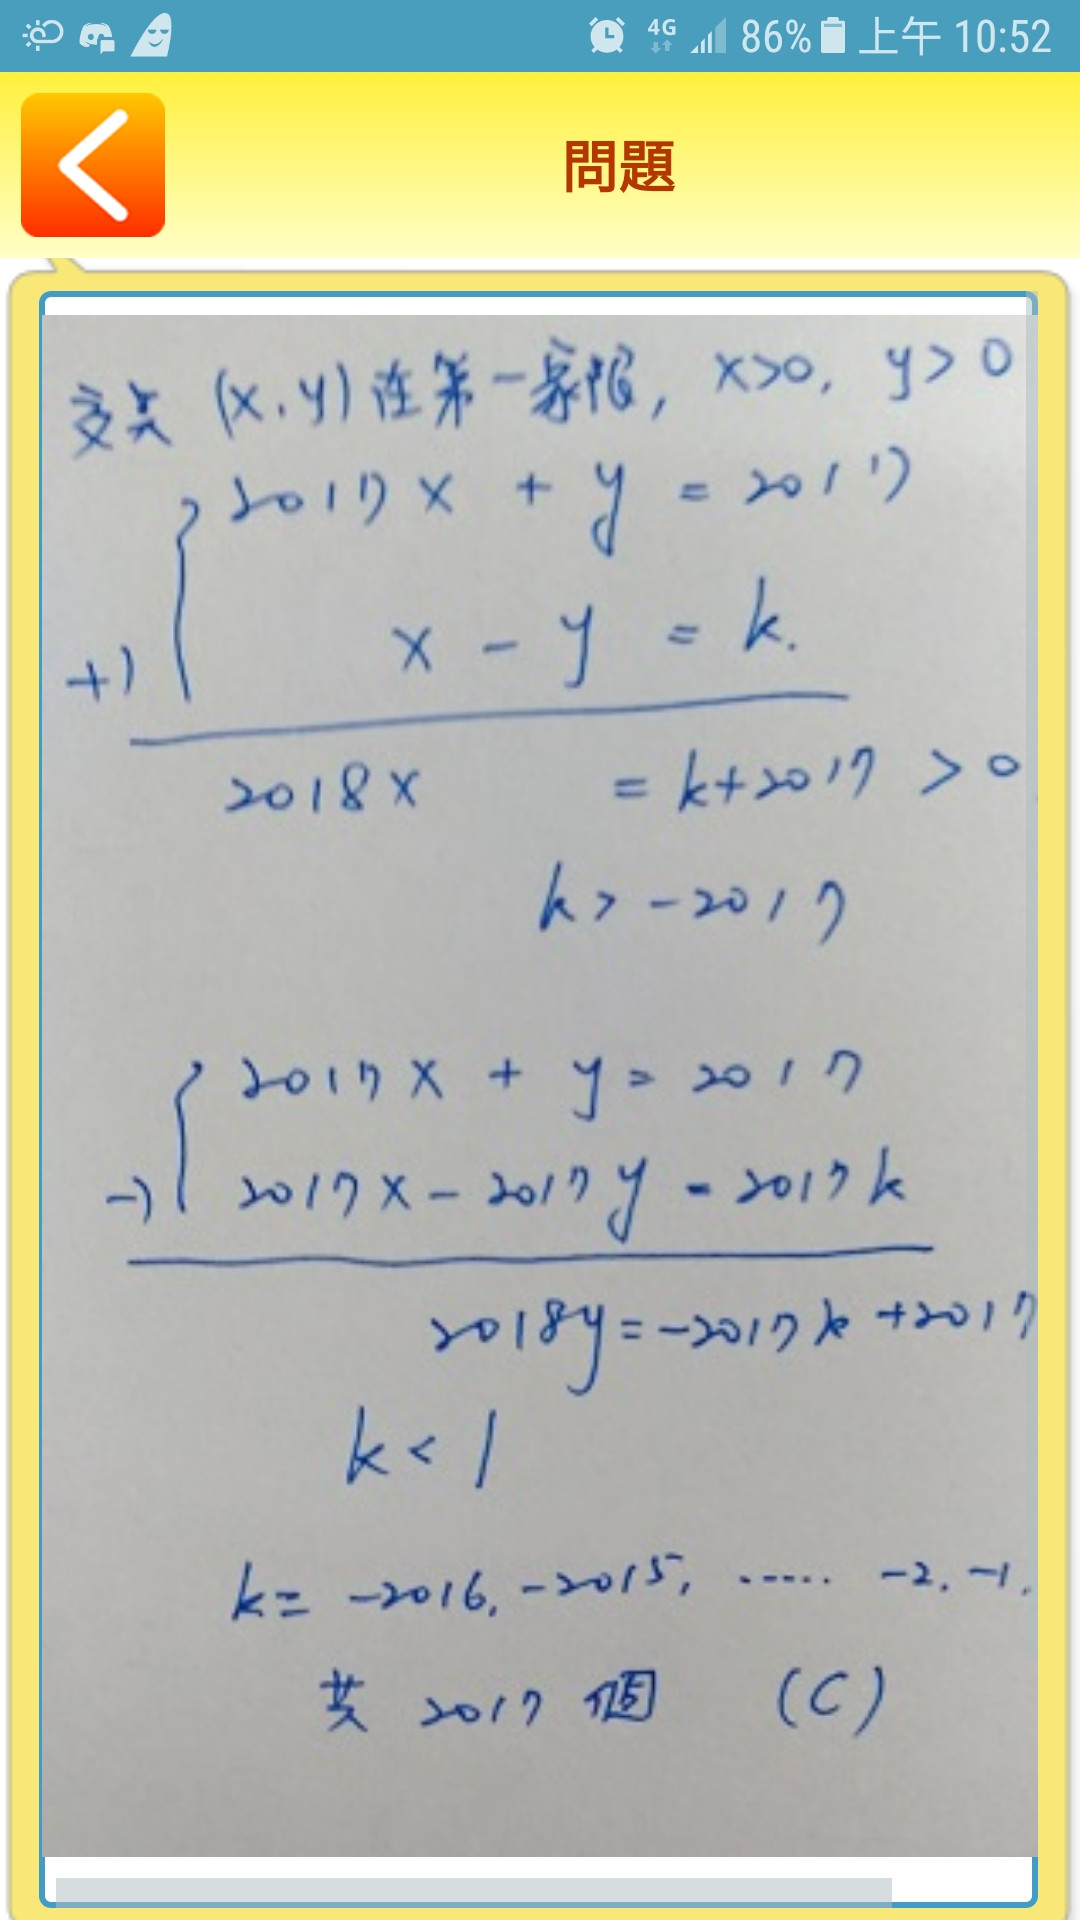 4G 86% 上午 10:52
問題
交点 (x,y) 在第一象限, x>0, y>0
2017x + y = 2017
+) x - y = k.
2018x = k+2017 > 0
k > -2017
2017x + y = 2017
-) 2017x - 2017y = 2017k
2018y = -2017k + 2017
k < 1
k = -2016, -2015, ..... -2, -1,
共 2017 個 (C)